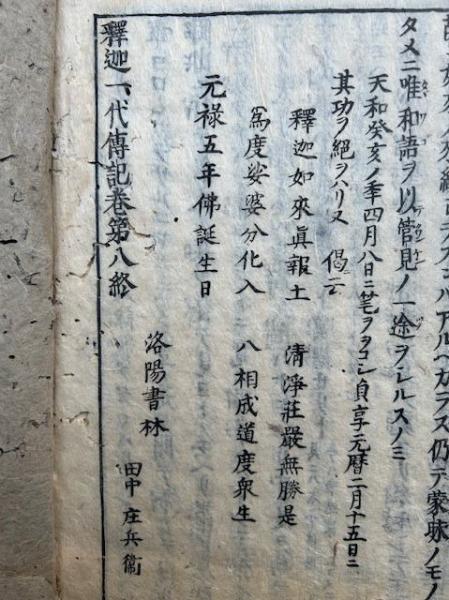 ルヘカラス仍テ蒙昧ノモノ
タメニ唯和語ヲ以管見ノ一途ヲシルスノミ
天和癸亥ノ季四月八日ニ筆ヲヲコシ貞享元暦二月十五日ニ
其功ヲ絶ヲハリヌ 偈云
釋迦如來眞報土 清淨莊嚴無勝是
爲度娑婆分化入 八相成道度衆生
元禄五年佛誕生日
洛陽書林
田中庄兵衞
釋迦一代傳記巻第八終